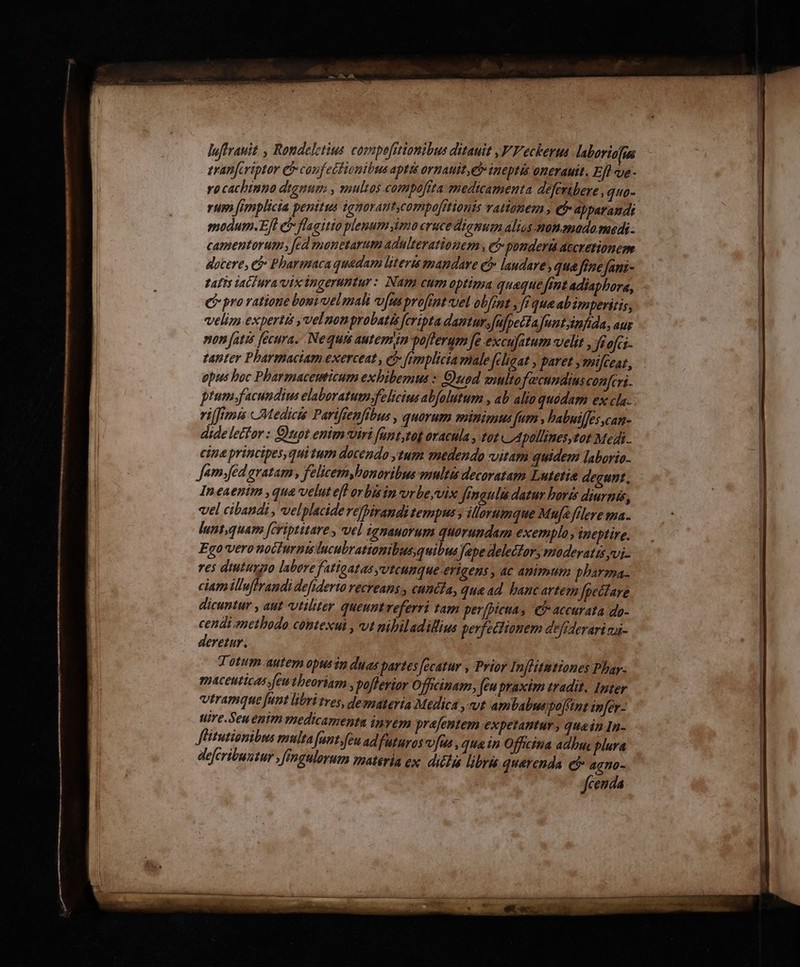 luſtrauit , Rondeletius compoſitionibus ditauit , VVeckerus laborioſus
tranſcriptor & confectionibus aptis ornauit, & ineptis onerauit. Eſt ve-
ro cachinno dignum , multos compoſita medicamenta deſcribere , quo-
rum ſimplicia penitus ignorant, compoſitionis rationem , & apparandi
modum. Eſt & flagitio plenum, imo cruce dignum alios non modo medi-
camentorum, ſed monetarum adulterationem , & ponderis accretionem
docere, & Pharmaca quædam literis mandare & laudare , quæ ſine ſani-
tatis iactura vix ingeruntur : Nam cum optima quæque ſint adiaphora,
& pro ratione boni vel mali vſus proſint vel obſint , ſi quæ ab imperitis,
velim expertis , vel non probatis ſcripta dantur, ſuſpecta ſunt, infida, aut
non ſatis ſecura. Nequis autem in poſterum ſe excuſatum velit , ſi oſci-
tanter Pharmaciam exerceat , & ſimplicia male ſeligat , paret , miſceat,
opus hoc Pharmaceuticum exhibemus : Quod multo fœcundius conſcri-
ptum, facundius elaboratum, felicius abſolutum , ab alio quodam ex cla-
riſſimis Medicis Pariſienſibus , quorum minimus ſum , habuiſſes, can-
dide lector : Quot enim viri ſunt, tot oracula , tot Apollines, tot Medi-
cinæ principes, qui tum docendo , tum medendo vitam quidem laborio-
ſam, ſed gratam , felicem, honoribus multis decoratam Lutetiæ degunt.
In ea enim , quæ velut eſt orbis in vrbe, vix ſingulis datur horis diurnis,
vel cibandi , vel placide reſpirandi tempus , illorumque Muſæ ſilere ma-
lunt, quam ſcriptitare , vel ignauorum quorundam exemplo , ineptire.
Ego vero nocturnis lucubrationibus, quibus ſæpe delector, moderatis , vi-
res diuturno labore fatigatas , vtcunque erigens , ac animum pharma-
ciam illuſtrandi deſiderio recreans , cuncta, quæ ad hanc artem ſpectare
dicuntur , aut vtiliter queunt referri tam perſpicua , & accurata do-
cendi methodo contexui , vt nihil ad illius perfectionem deſiderari vi-
deretur.
Totum autem opus in duas partes ſecatur , Prior Inſtitutiones Phar-
maceuticas, ſeu theoriam , poſterior Officinam, ſeu praxim tradit. Inter
vtramque ſunt libri tres, de materia Medica , vt ambabus poſſint inſer-
uire. Seu enim medicamenta in rem præſentem expetantur , quæ in In-
ſtitutionibus multa ſunt, ſeu ad futuros vſus , quæ in Officina adhuc plura
deſcribuntur , ſingulorum materia ex dictis libris quærenda & agno-
ſcenda